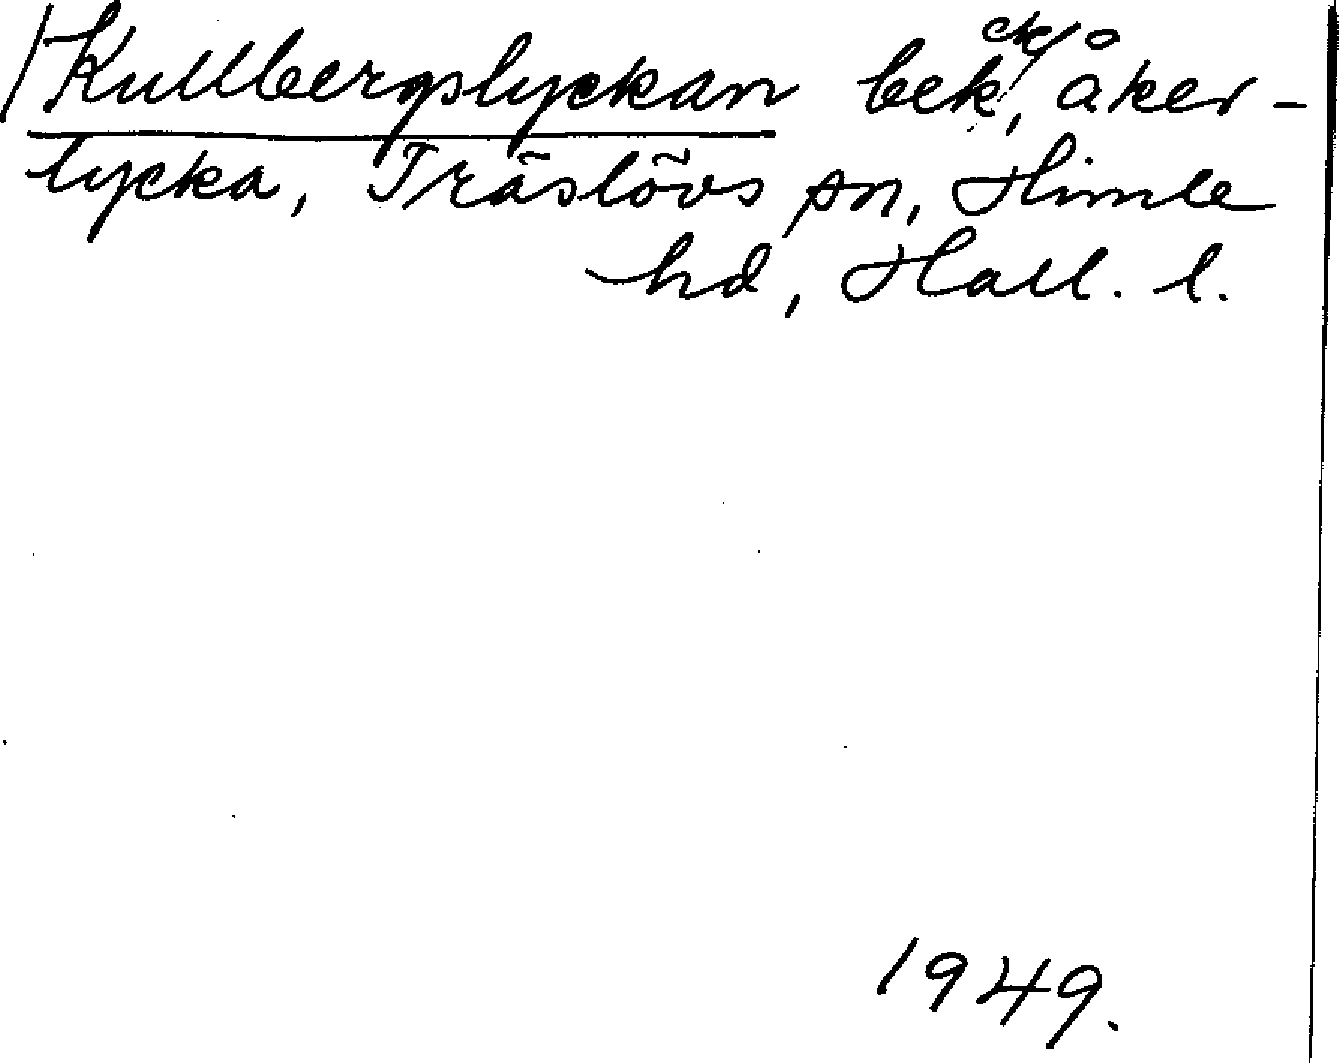 /Kullbergslyckan bek, åker-
lycka, Träslövs sn, Himle
hd, Hall. l.
1949.